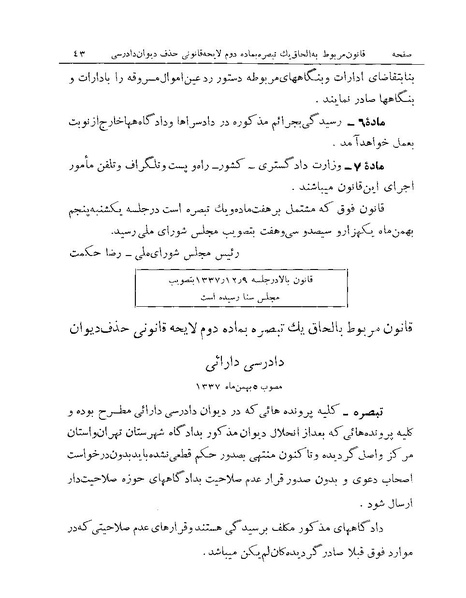 صفحه قانون مربوط به الحاق یك تبصره بماده دوم لایحه قانونی حذف دیوان دادرسی ٤٣
بنابتقاضای ادارات وبنگاههای مربوطه دستور ردعین اموال مسروقه را بادارات و
بنگاهها صادر نمایند .
مادهٔ ٦ ـ رسیدگی بجرائم مذکوره در دادسراها ودادگاه هاخارج از نوبت
بعمل خواهد آمد .
مادهٔ ٧ ـ وزارت دادگستری ـ کشور ـ راه و پست و تلگراف و تلفن مأمور
اجرای این قانون میباشند .
قانون فوق که مشتمل بر هفت ماده و یك تبصره است در جلسه یکشنبه پنجم
بهمن ماه یکهزارو سیصدو سی و هفت بتصویب مجلس شورای ملی رسید.
رئیس مجلس شورای ملی ـ رضا حکمت
قانون بالا در جلسه ١٣٣٧/١٢/٩ بتصویب
مجلس سنا رسیده است
قانون مربوط بالحاق یك تبصره بماده دوم لایحه قانونی حذف دیوان
دادرسی دارائی
مصوب ٥ بهمن ماه ١٣٣٧
تبصره ـ کلیه پرونده هائی که در دیوان دادرسی دارائی مطرح بوده و
کلیه پرونده هائی که بعداز انحلال دیوان مذکور بدادگاه شهرستان تهران واستان
مرکز واصل گردیده وتاکنون منتهی بصدور حکم قطعی نشده باید بدون درخواست
اصحاب دعوی و بدون صدور قرار عدم صلاحیت بدادگاههای حوزه صلاحیت دار
ارسال شود .
دادگاههای مذکور مکلف برسیدگی هستند وقرارهای عدم صلاحیتی که در
موارد فوق قبلا صادر گردیده کان لم یکن میباشد .